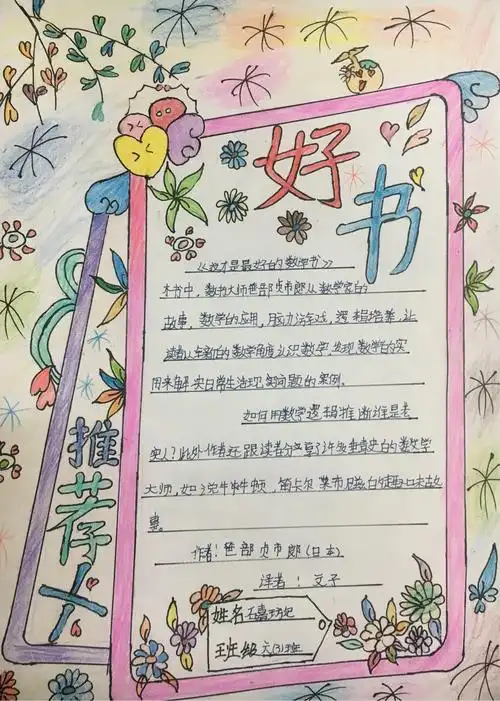 好书
推荐卡
《这才是最好的数学书》
本书中，数学大师笹部贞市郎从数学家的
故事，数学的应用，脑力游戏，逻辑培养，让
读者从全新的数学角度认识数学，发现数学的实
用来解决日常生活现实问题的案例。
如何用数学逻辑推断谁是老
实人？此外作者还跟读者分享了许多垂青史的数学
大师，如：牛顿，笛卡尔 莱布尼兹的趣味故
事。
作者：笹部贞市郎（日本）
译者：文子
姓名
班级 六(3)班